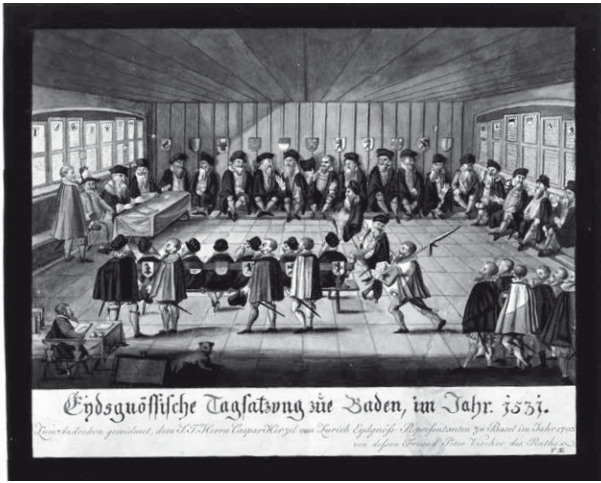 Eydsgnößische Tagsatzung züe Baden, im Jahr. 1531.
Zum Andenken gewidmet, dem S.T. Herrn Caspar Hirzel von Zürich Eydgnöß: Repræsentanten zu Basel im Jahr 1792
von dessen Freund Peter Vischer des Raths